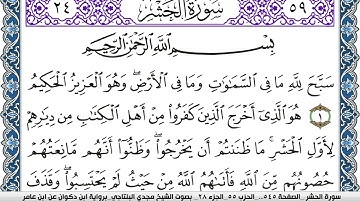 ٢٤ سُورَةُ الْحَشْرِ ٥٩
بِسْمِ اللَّهِ الرَّحْمَٰنِ الرَّحِيمِ
سَبَّحَ لِلَّهِ مَا فِى السَّمَٰوَٰتِ وَمَا فِى الْأَرْضِ ۖ وَهُوَ الْعَزِيزُ الْحَكِيمُ
١ هُوَ الَّذِى أَخْرَجَ الَّذِينَ كَفَرُوا مِنْ أَهْلِ الْكِتَٰبِ مِن دِيَٰرِهِمْ
لِأَوَّلِ الْحَشْرِ ۚ مَا ظَنَنتُمْ أَن يَخْرُجُوا ۖ وَظَنُّوا أَنَّهُم مَّانِعَتُهُمْ
حُصُونُهُم مِّنَ اللَّهِ فَأَتَىٰهُمُ اللَّهُ مِنْ حَيْثُ لَمْ يَحْتَسِبُوا ۖ وَقَذَفَ
سورة الحشر .. الصفحة ٥٤٥ .. الحزب ٥٥ .. الجزء ٢٨ .. بصوت الشيخ مجدي البلتاجي .. برواية ابن ذكوان عن ابن عامر